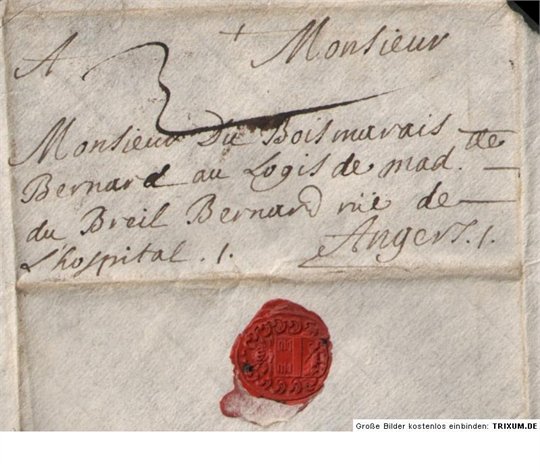 A Monsieur
3
Monsieur Du Boismarais
Bernard au Logis de mad.lle
du Breil Bernard rüe de
L'hospital . / . Angers . / .
Große Bilder kostenlos einbinden: TRIXUM.DE